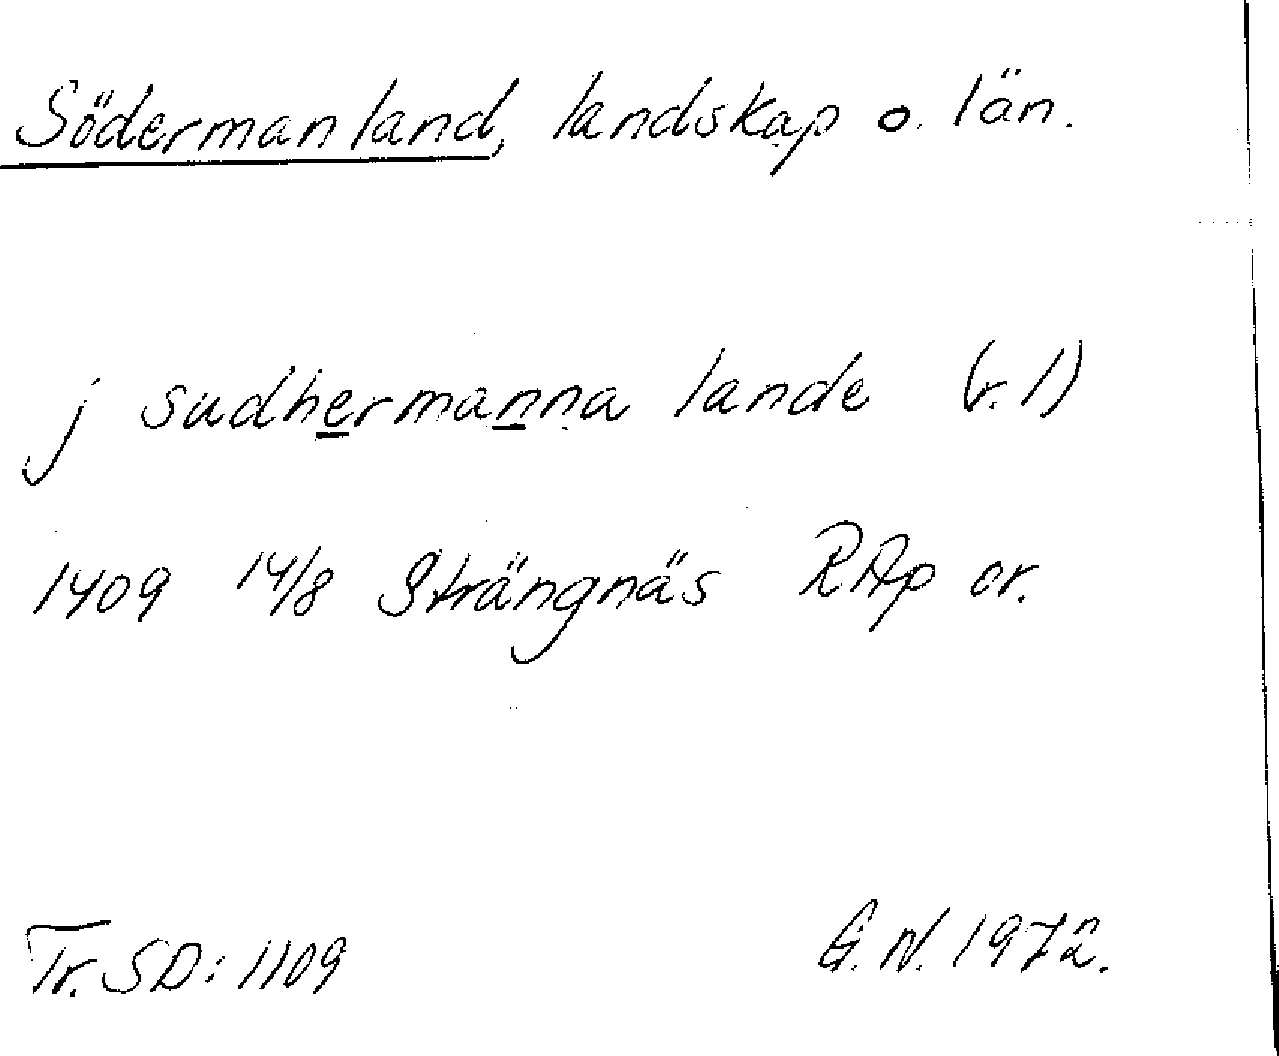 Södermanland, landskap o. län.
j sudhermanna lande (r. 1)
1409 14/8 Strängnäs RAp or.
Tr. SD: 1109
G. N. 1972.